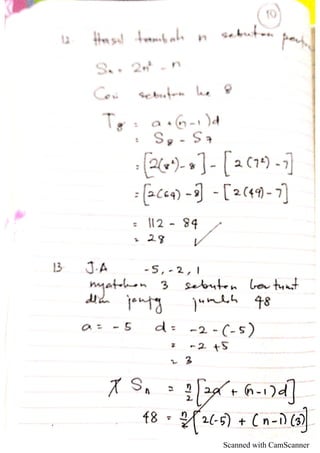 10
12. Hasil tambah n sebutan pertama
Sn = 2n² - n
Cari sebutan ke 8
T8 = a + (n-1)d
= S8 - S7
= [2(8²)-8] - [2(7²)-7]
= [2(64)-8] - [2(49)-7]
= 112 - 84
= 28
13. J.A -5, -2, 1
nyatakan 3 sebutan berturut
dlm jumlah 48
a = -5 d = -2 - (-5)
= -2 + 5
= 3
Sn = n/2 [2a + (n-1)d]
48 = n/2 [2(-5) + (n-1)(3)]
Scanned with CamScanner